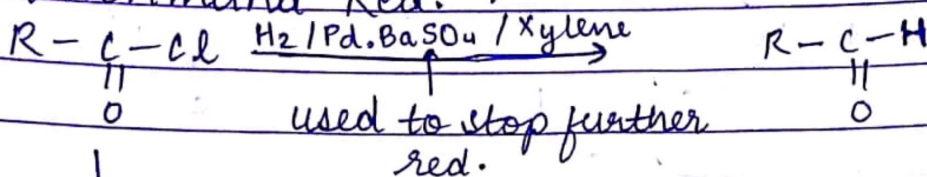 Red.
R - C - Cl H2 / Pd. BaSO4 / Xylene R - C - H
|| ||
O used to stop further O
red.